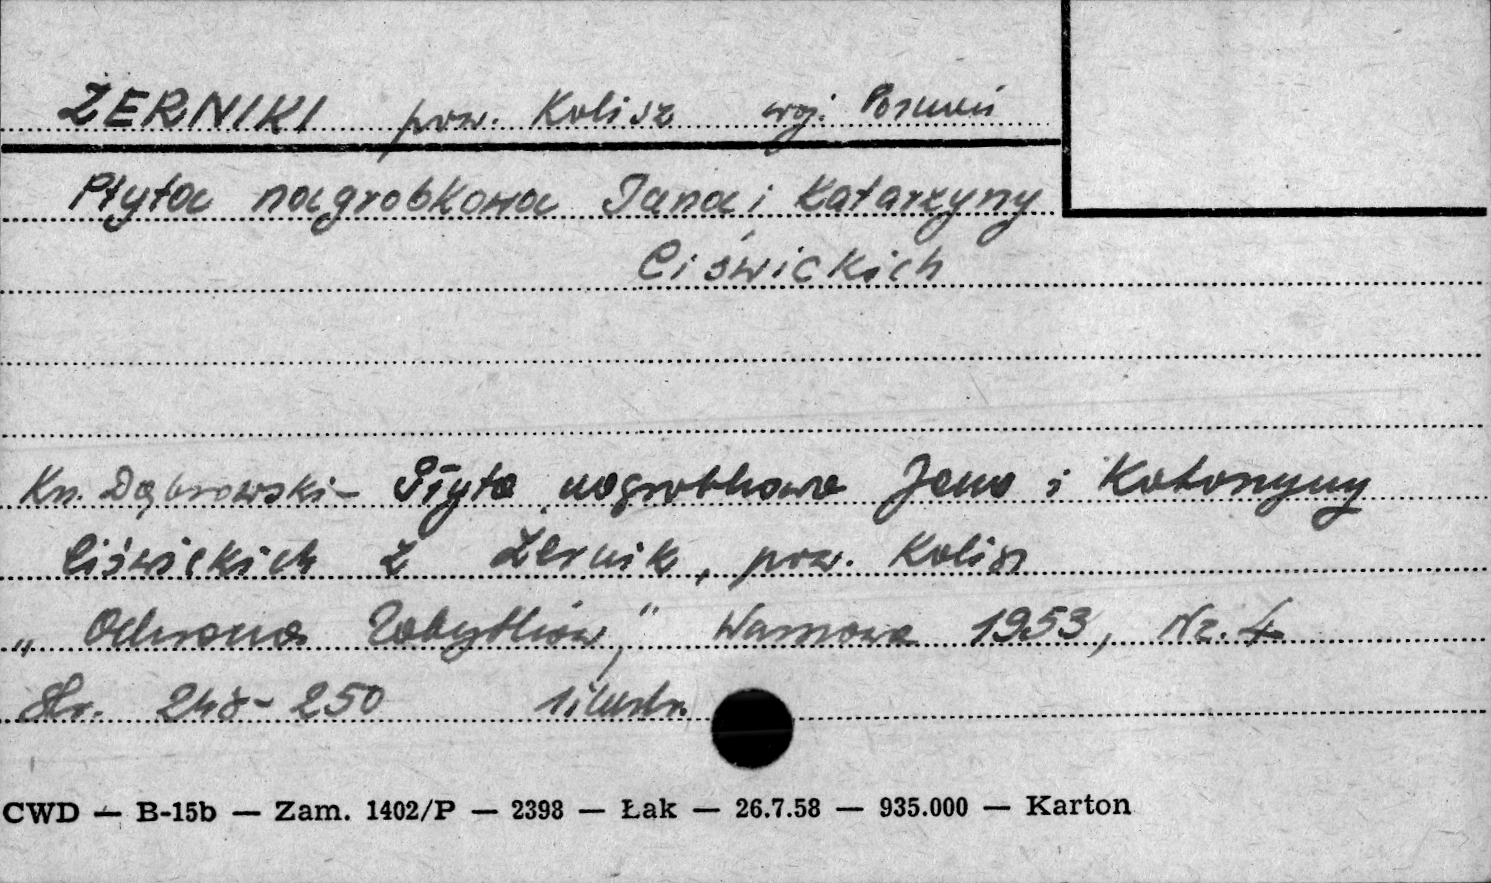 ŻERNIKI pow. Kalisz woj. Poznań
Płyta nagrobkowa Jana i Katarzyny
Ciświckich
Kn. Dąbrowski – Płyta nagrobkowa Jana i Katarzyny
Ciświckich z Żernik, pow. Kalisz
„Ochrona Zabytków," Warszawa 1953, Nr. 4
Str. 248-250 1 ilustr.
CWD — B-15b — Zam. 1402/P — 2398 — Łak — 26.7.58 — 935.000 — Karton